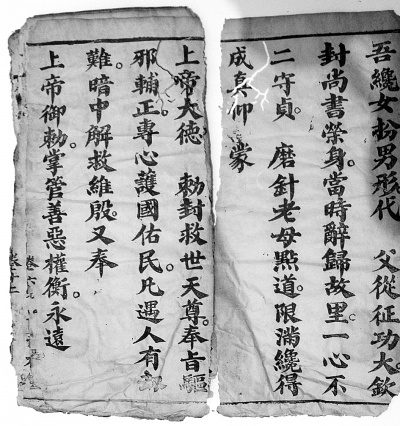 吾纔女扮男形代　父從征功大欽
封尚書榮身。當時辭歸故里。一心不
二守貞。磨針老母點道。限滿纔得
成真仰　蒙
上帝大德　勅封救世天尊。奉旨驅
邪輔正。專心護國佑民。凡遇人有
難。暗中解救維殷。又奉
上帝御勅。掌管善惡權衡。永遠